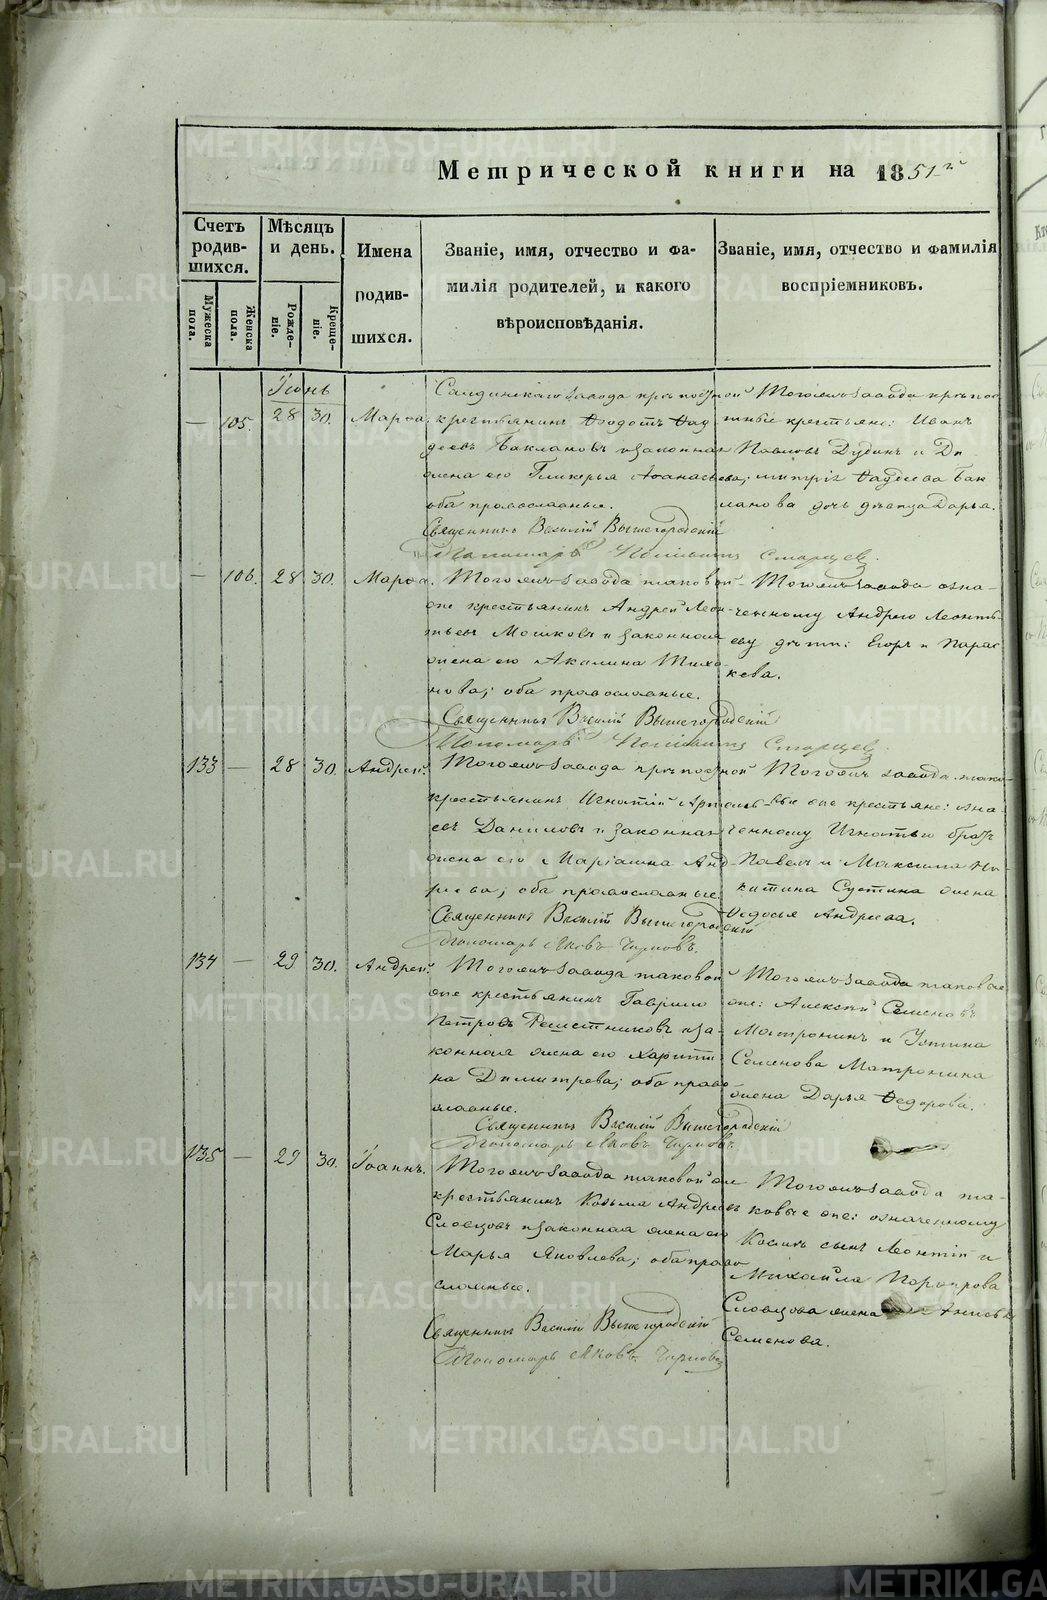 Метрической книги на 1851й
Счетъ родившихся.
Мѣсяцъ и день.
Имена родившихся.
Званіе, имя, отчество и фамилія родителей, и какого вѣроисповѣданія.
Званіе, имя, отчество и фамилія воспріемниковъ.
Мужеска пола.
Женска пола.
Рожденіе.
Крещеніе.
Іюнь
— 105. 28 30. Марѳа.
Салдинскаго завода
крестьянинъ Ѳеодотъ Ѳад
деевъ Баклановъ и законная
жена его Гликерья Аѳанасьева,
оба православные.
Священникъ Василій Вышегородскій
Пономарь Старцев.
Тогожъ завода
крестьяне: Иванъ
Павловъ Дудинъ и Ди
митрія Ѳаддеева Бак
ланова дочь дѣвица Дарья.
— 106. 28 30. Марѳа.
Тогожъ завода таковой
же крестьянинъ Андрей Леон
тьевъ Мошковъ и законная
жена его Акилина Тихо
нова; оба православные.
Священникъ Василій Вышегородскій
Пономарь Старцев.
Тогожъ завода озна
ченному Андрею Леонть
еву дѣти: Егоръ и Парас
кева.
133 — 28 30. Андрей.
Тогожъ завода
крестьянинъ Игнатій Артемь
евъ Даниловъ и законная
жена его Маріамна Анд
рѣева; оба православные.
Священникъ Василій Вышегородскій
Пономарь Яковъ Чирковъ.
Тогожъ завода тако
вые же крестьяне: озна
ченному Игнатью братъ
Павелъ и Максима Ни
китина жена
Ѳедосья Андреева.
134 — 29 30. Андрей.
Тогожъ завода таковой
же крестьянинъ Гаврило
Петровъ Решетниковъ и за
конная жена его Харити
на Димитрева; оба право
славные.
Священникъ Василій Вышегородскій
Пономарь Яковъ Чирковъ
Тогожъ завода таковые
же: Алексѣй Семеновъ
Матронинъ и
Семенова Матронина
жена Дарья Ѳедорова.
135 — 29 30. Іоаннъ.
Тогожъ завода таковой же
крестьянинъ Козьма Андреевъ
Словцовъ и законная жена его
Марья Яковлева; оба право
славные.
Священникъ Василій Вышегородскій
Пономарь Яковъ Чирковъ
Тогожъ завода та
ковые же: означенному
Косьмѣ сынъ Леонтій и
Михайла Порфирова
Словцова жена
Семенова.
METRIKI.GASO-URAL.RU